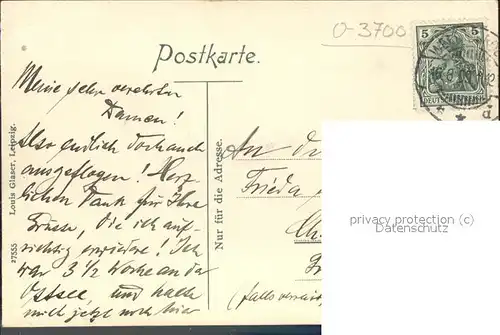 O-3700
Postkarte.
5 5
DEUTSCHES
Meine sehr verehrten
Damen!
Also endlich doch auch
ausgeflogen! Herz-
lichen Dank für Ihre
Grüsse, die ich auf-
richtig erwidere! Ich
war 3 1/2 Woche an der
Ostsee, und halte
mich jetzt noch hier
Louis Glaser, Leipzig.
27555
Nur für die Adresse.
An
Frieda
(falls verreist
privacy protection (c)
Datenschutz